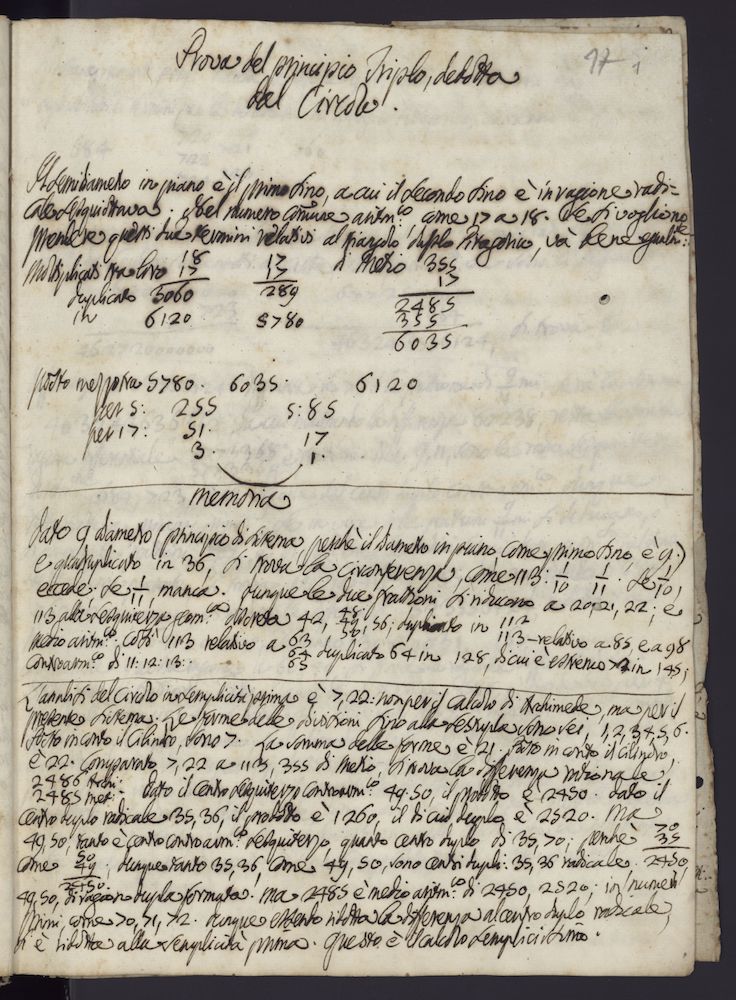 Prova del principio Triplo, dedotta
dal Circolo.
17 1
Il semidiametro in piano è il primo sino, a cui il secondo sino è in ragione radi=
cale sesquiottava; nel numero comune aritm.co come 17 a 18. Se si vogliono
prendere questi due termini relativi al triangolo duplo, và bene
moltiplicati tra loro 18 17 di Metio 355
17 17 17
duplicato 3060 289 2485
in 6120 5780 355
6035
sotto 5780. 6035. 6120
per 5: 255 5:85
per 17: 51. 17
3 1.
memoria
Dato 9 diametro (principio di sistema, perchè il diametro in piano, come primo sino, è 9.)
e quadruplicato in 36, si trova la circonferenza, come 113: 1/10 1/11. Se 1/10,
eccede; se 1/11, manca. Dunque le due frazioni si riducono a 20, 21, 22; e
113 alla sesquiterza geom.ca 42, 48, 49, 50, 56; duplicato in 112
113 relativo a 85, e a 98
medio aritm.co. Così 113 relativo a 63 64 65 duplicato 64 in 128, di cui è estremo in 145;
controarm.co di 11:12:13:
L'analisi del Circolo in semplicità prima è 7, 22: non per il calcolo di Archimede, ma per il
presente sistema. Le forme delle divisioni sino alla sestupla sono sei, 1, 2, 3, 4, 5, 6.
Posto in conto il cilindro, sono 7. La somma delle forme è 21. Posto in conto il cilindro,
è 22. Comparato 7, 22 a 113, 355 di Metio, si trova la differenza razionale,
2486 Archi:
2485 Met: Dato il centro sesquiterzo controarm.co 49.50, il prodotto è 2450. Dato il
centro duplo radicale 35, 36, il prodotto è 1260, il di cui duplo è 2520. Ma
49, 50, tanto è centro controarm.co sesquiterzo, quanto centro duplo di 35, 70; perchè 70 35
come 50 49; dunque tanto 35, 36, come 49, 50, sono centri dupli: 35, 36 radicale. 2450
2450
49, 50, di ragion dupla formata. Ma 2485 è medio aritm.co di 2450, 2520; in numeri
primi, come 70, 71, 72. Dunque essendo ridotta la differenza al centro duplo radicale,
si è ridotta alla semplicità prima. Questo è calcolo semplicissimo.